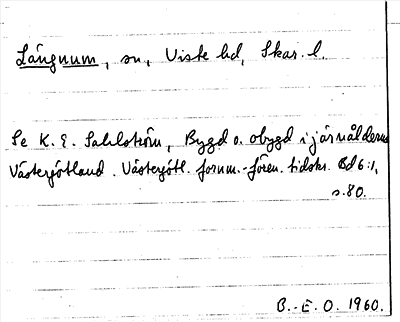 Långnum, sn, Viste hd, Skar. l.
Se K. E. Sahlström, Bygd o. obygd i järnålderns
Västergötland. Västergötl. fornm.-fören. tidskr. Bd 6:1,
s. 80.
B.-E. O. 1960.